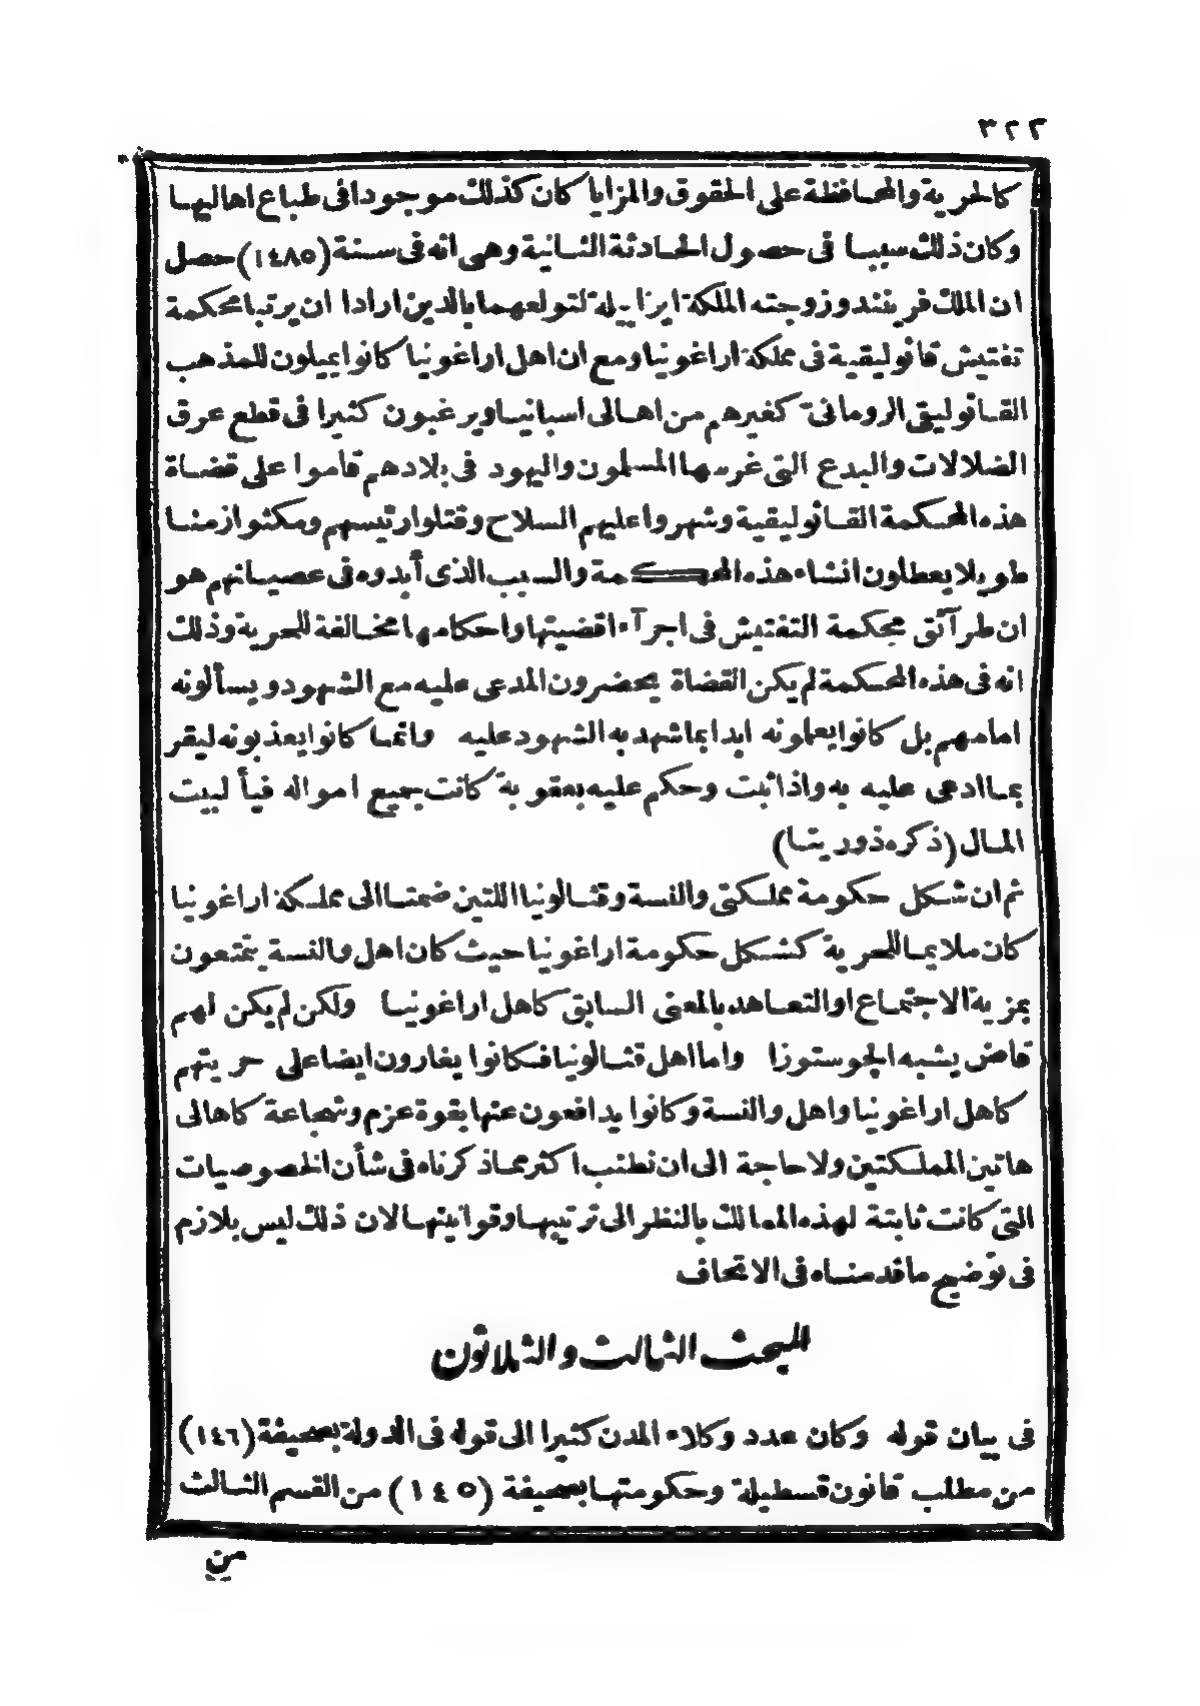 ٣٢٢
كالحرية والمحافظة على الحقوق والمزايا كان كذلك موجودا فى طباع اهاليها
وكان ذلك سببا فى حصول الحادثة الثانية وهى انه فى سنة (١٤٨٥) حصل
ان الملك فرينند وزوجته الملكة ايزابيلة لتولعهما بالدين ارادا ان يرتبا محكمة
تفتيش قاثوليقية فى مملكة اراغونيا ومع ان اهل اراغونيا كانوا يميلون للمذهب
القاثوليقى الرومانى كغيرهم من اهالى اسبانيا ويرغبون كثيرا فى قطع عرق
الضلالات والبدع التى غرسها المسلمون واليهود فى بلادهم قاموا على قضاة
هذه المحكمة القاثوليقية وشهروا عليهم السلاح وقتلوا رئيسهم ومكثوا زمنا
طويلا يعطلون انشاء هذه المحكمة والسبب الذى أبدوه فى عصيانهم هو
ان طرآئق محكمة التفتيش فى اجرآء اقضيتها واحكامها مخالفة للحرية وذلك
انه فى هذه المحكمة لم يكن القضاة يحضرون المدعى عليه مع الشهود ويسألونه
امامهم بل كانوا يعلونه ابدا بما شهد به الشهود عليه وانما كانوا يعذبونه ليقر
بما ادعى عليه به واذا ثبت وحكم عليه بعقوبة كانت جميع امواله فيأ لبيت
المال (ذكره ذوريتا)
ثم ان شكل حكومة مملكتى والنسة وقثالونيا اللتين ضمتا الى مملكة اراغونيا
كان ملايما للحرية كشكل حكومة اراغونيا حيث كان اهل والنسة يتمتعون
بمزية الاجتماع او التعاهد بالمعنى السابق كاهل اراغونيا ولكن لم يكن لهم
قاض يشبه الجوستوزا واما اهل قثالونيا فكانوا يغارون ايضا على حريتهم
كاهل اراغونيا واهل والنسة وكانوا يدافعون عنها بقوة عزم وشجاعة كاهالى
هاتين المملكتين ولا حاجة الى ان نطنب اكثر مما ذكرناه فى شأن الخصوصيات
التى كانت ثابتة لهذه الممالك بالنظر الى ترتيبها وقوانينها لان ذلك ليس بلازم
فى توضيح ما قدمناه فى الاتحاف
المبحث الثالث والثلاثون
فى بيان قوله وكان عدد وكلاء المدن كثيرا الى قوله فى الدولة بصحيفة (١٤٦)
من مطلب قانون قسطيلة وحكومتها بصحيفة (١٤٥) من القسم الثالث
من